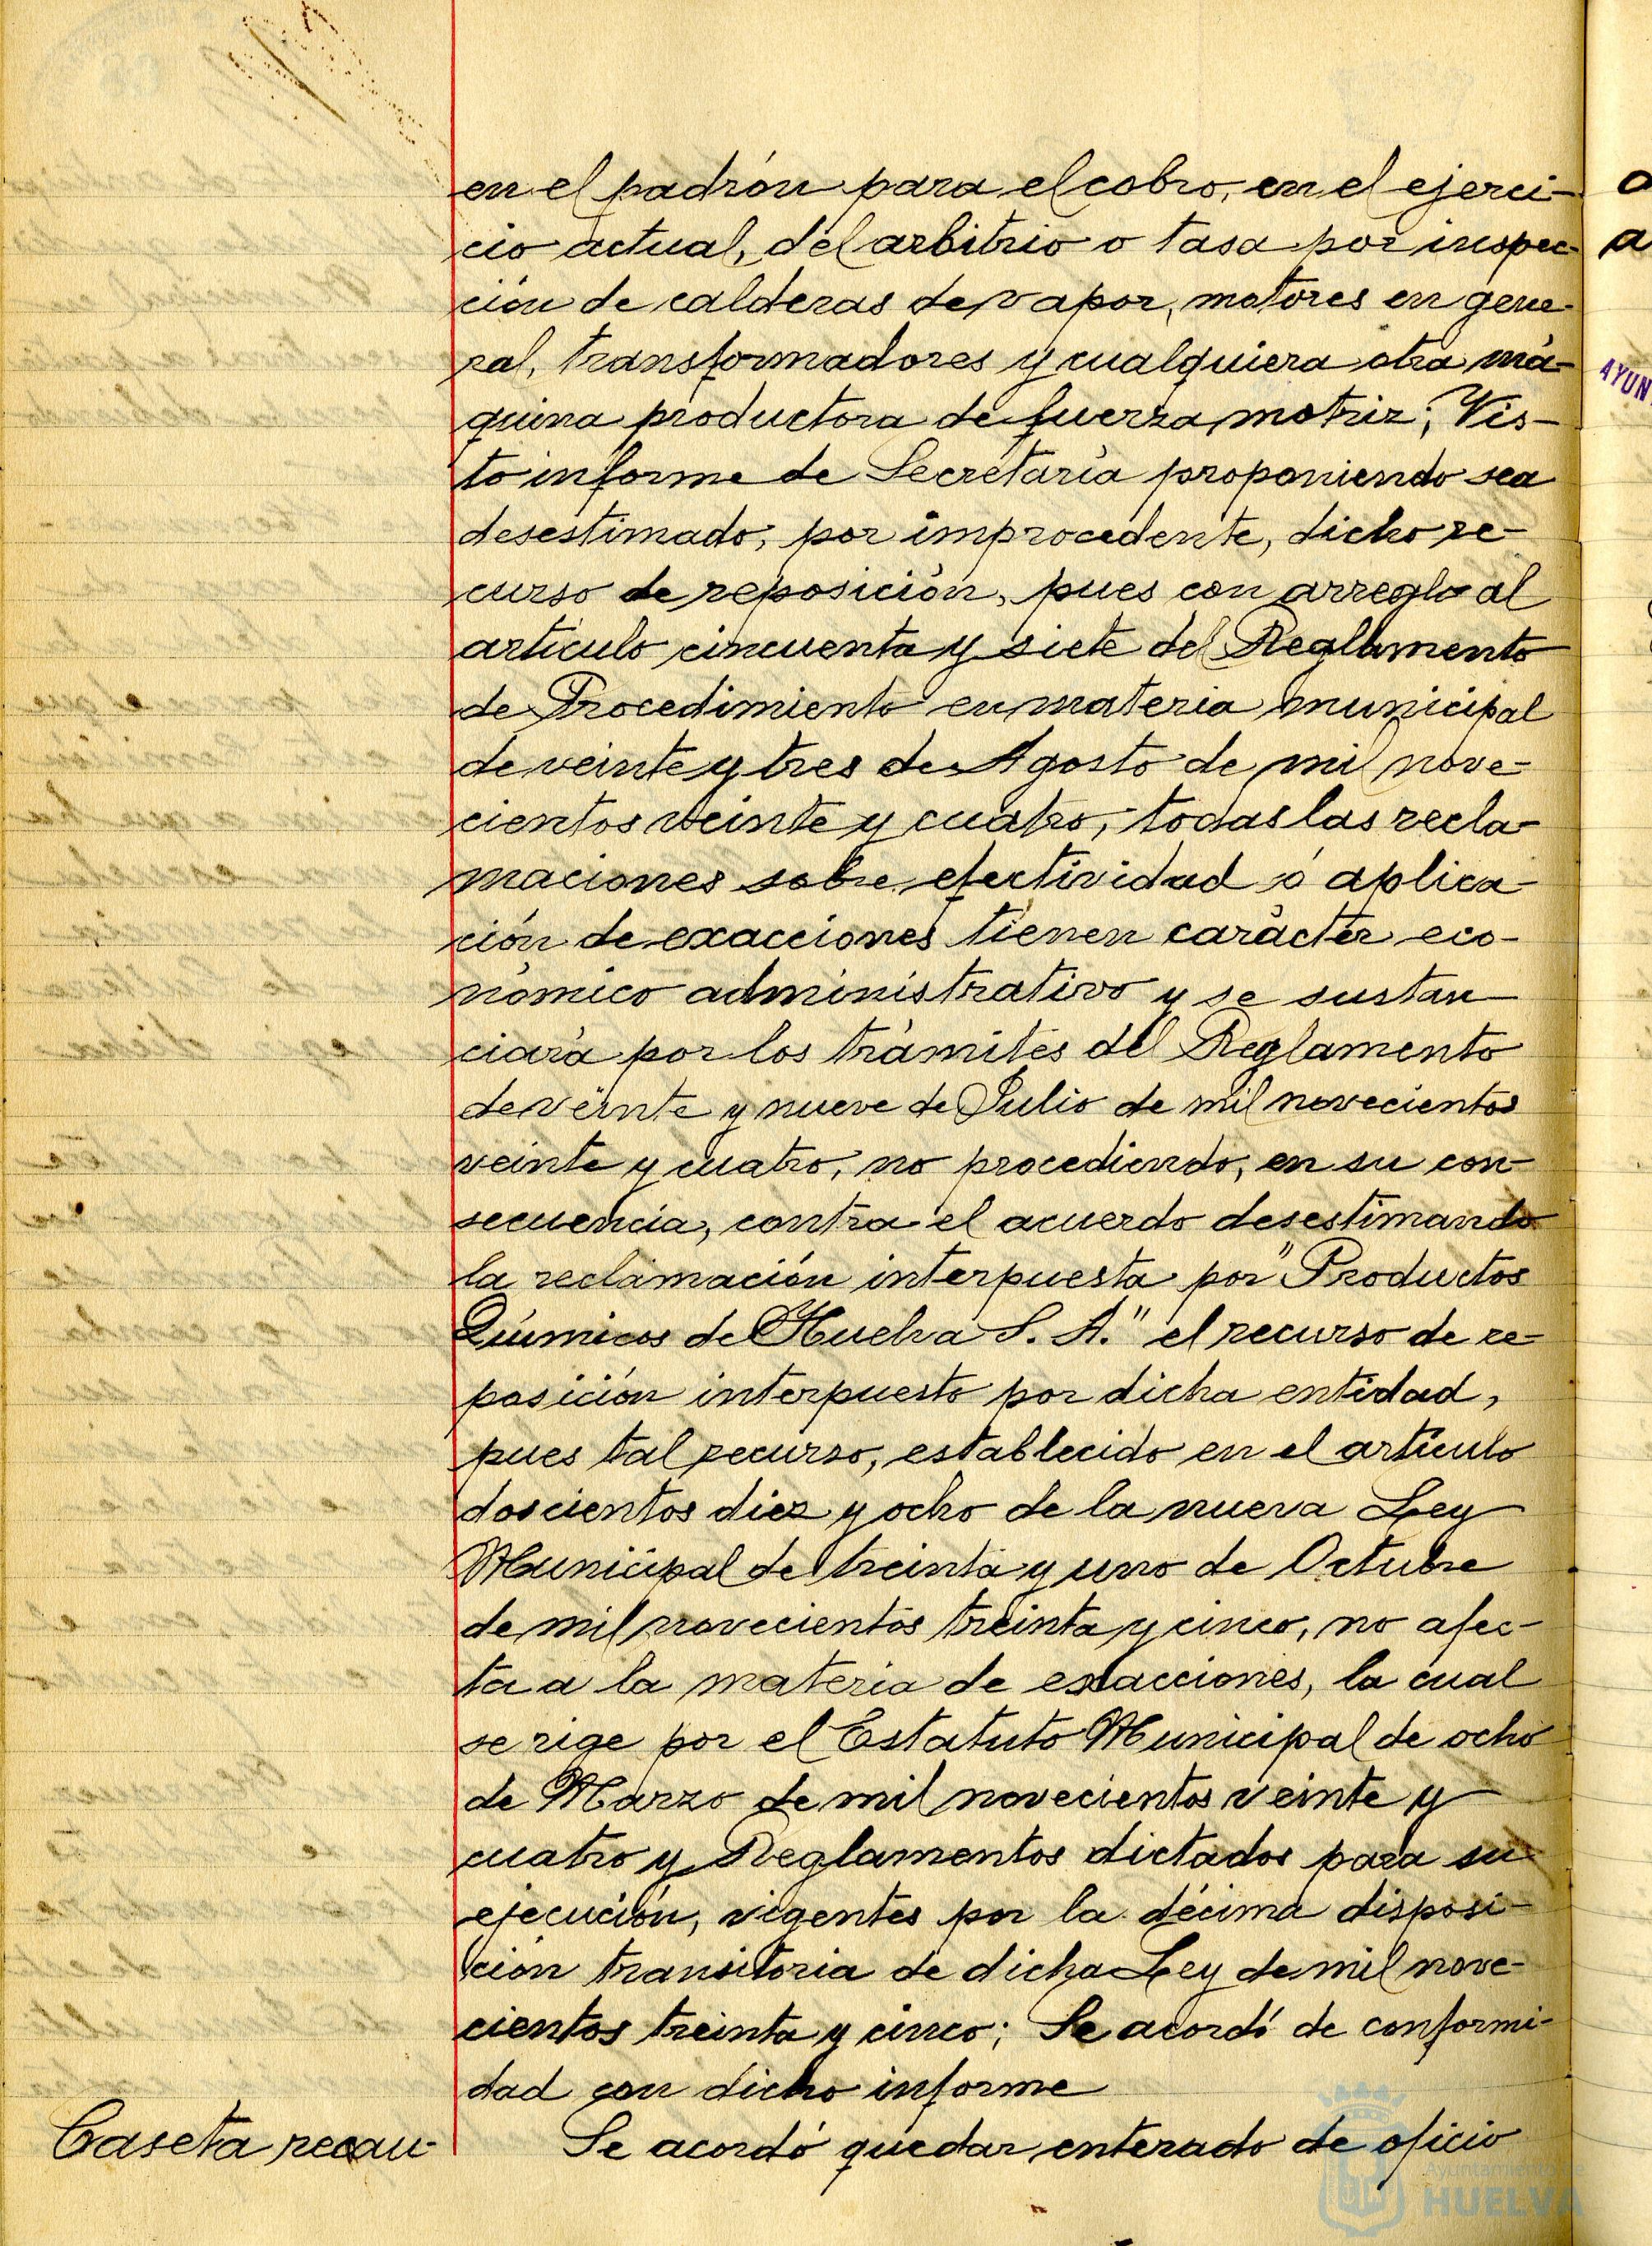 en el padrón para el cobro, en el ejerci-
cio actual, del arbitrio o tasa por inspec-
ción de calderas de vapor, motores en gene-
ral, transformadores y cualquiera otra má-
quina productora de fuerza motriz; Vis-
to informe de Secretaría proponiendo sea
desestimado, por improcedente, dicho re-
curso de reposición, pues con arreglo al
artículo cincuenta y siete del Reglamento
de Procedimiento en materia municipal
de veinte y tres de Agosto de mil nove-
cientos veinte y cuatro, todas las recla-
maciones sobre efectividad ó aplica-
ción de exacciones tienen carácter eco-
nómico administrativo y se sustan
ciará por los trámites del Reglamento
de veinte y nueve de Julio de mil novecientos
veinte y cuatro, no procediendo, en su con-
secuencia, contra el acuerdo desestimando
la reclamación interpuesta por "Productos
Químicos de Huelva S. A." el recurso de re-
posición interpuesto por dicha entidad,
pues tal recurso, establecido en el artículo
doscientos diez y ocho de la nueva Ley
Municipal de treinta y uno de Octubre
de mil novecientos treinta y cinco, no afec-
ta a la materia de exacciones, la cual
se rige por el Estatuto Municipal de ocho
de Marzo de mil novecientos veinte y
cuatro y Reglamentos dictados para su
ejecución, vigentes por la décima disposi-
ción transitoria de dicha Ley de mil nove-
cientos treinta y cinco; Se acordó de conformi-
dad con dicho informe
Caseta recau- Se acordó quedar enterado de oficio
AYUN
Ayuntamiento de
HUELVA